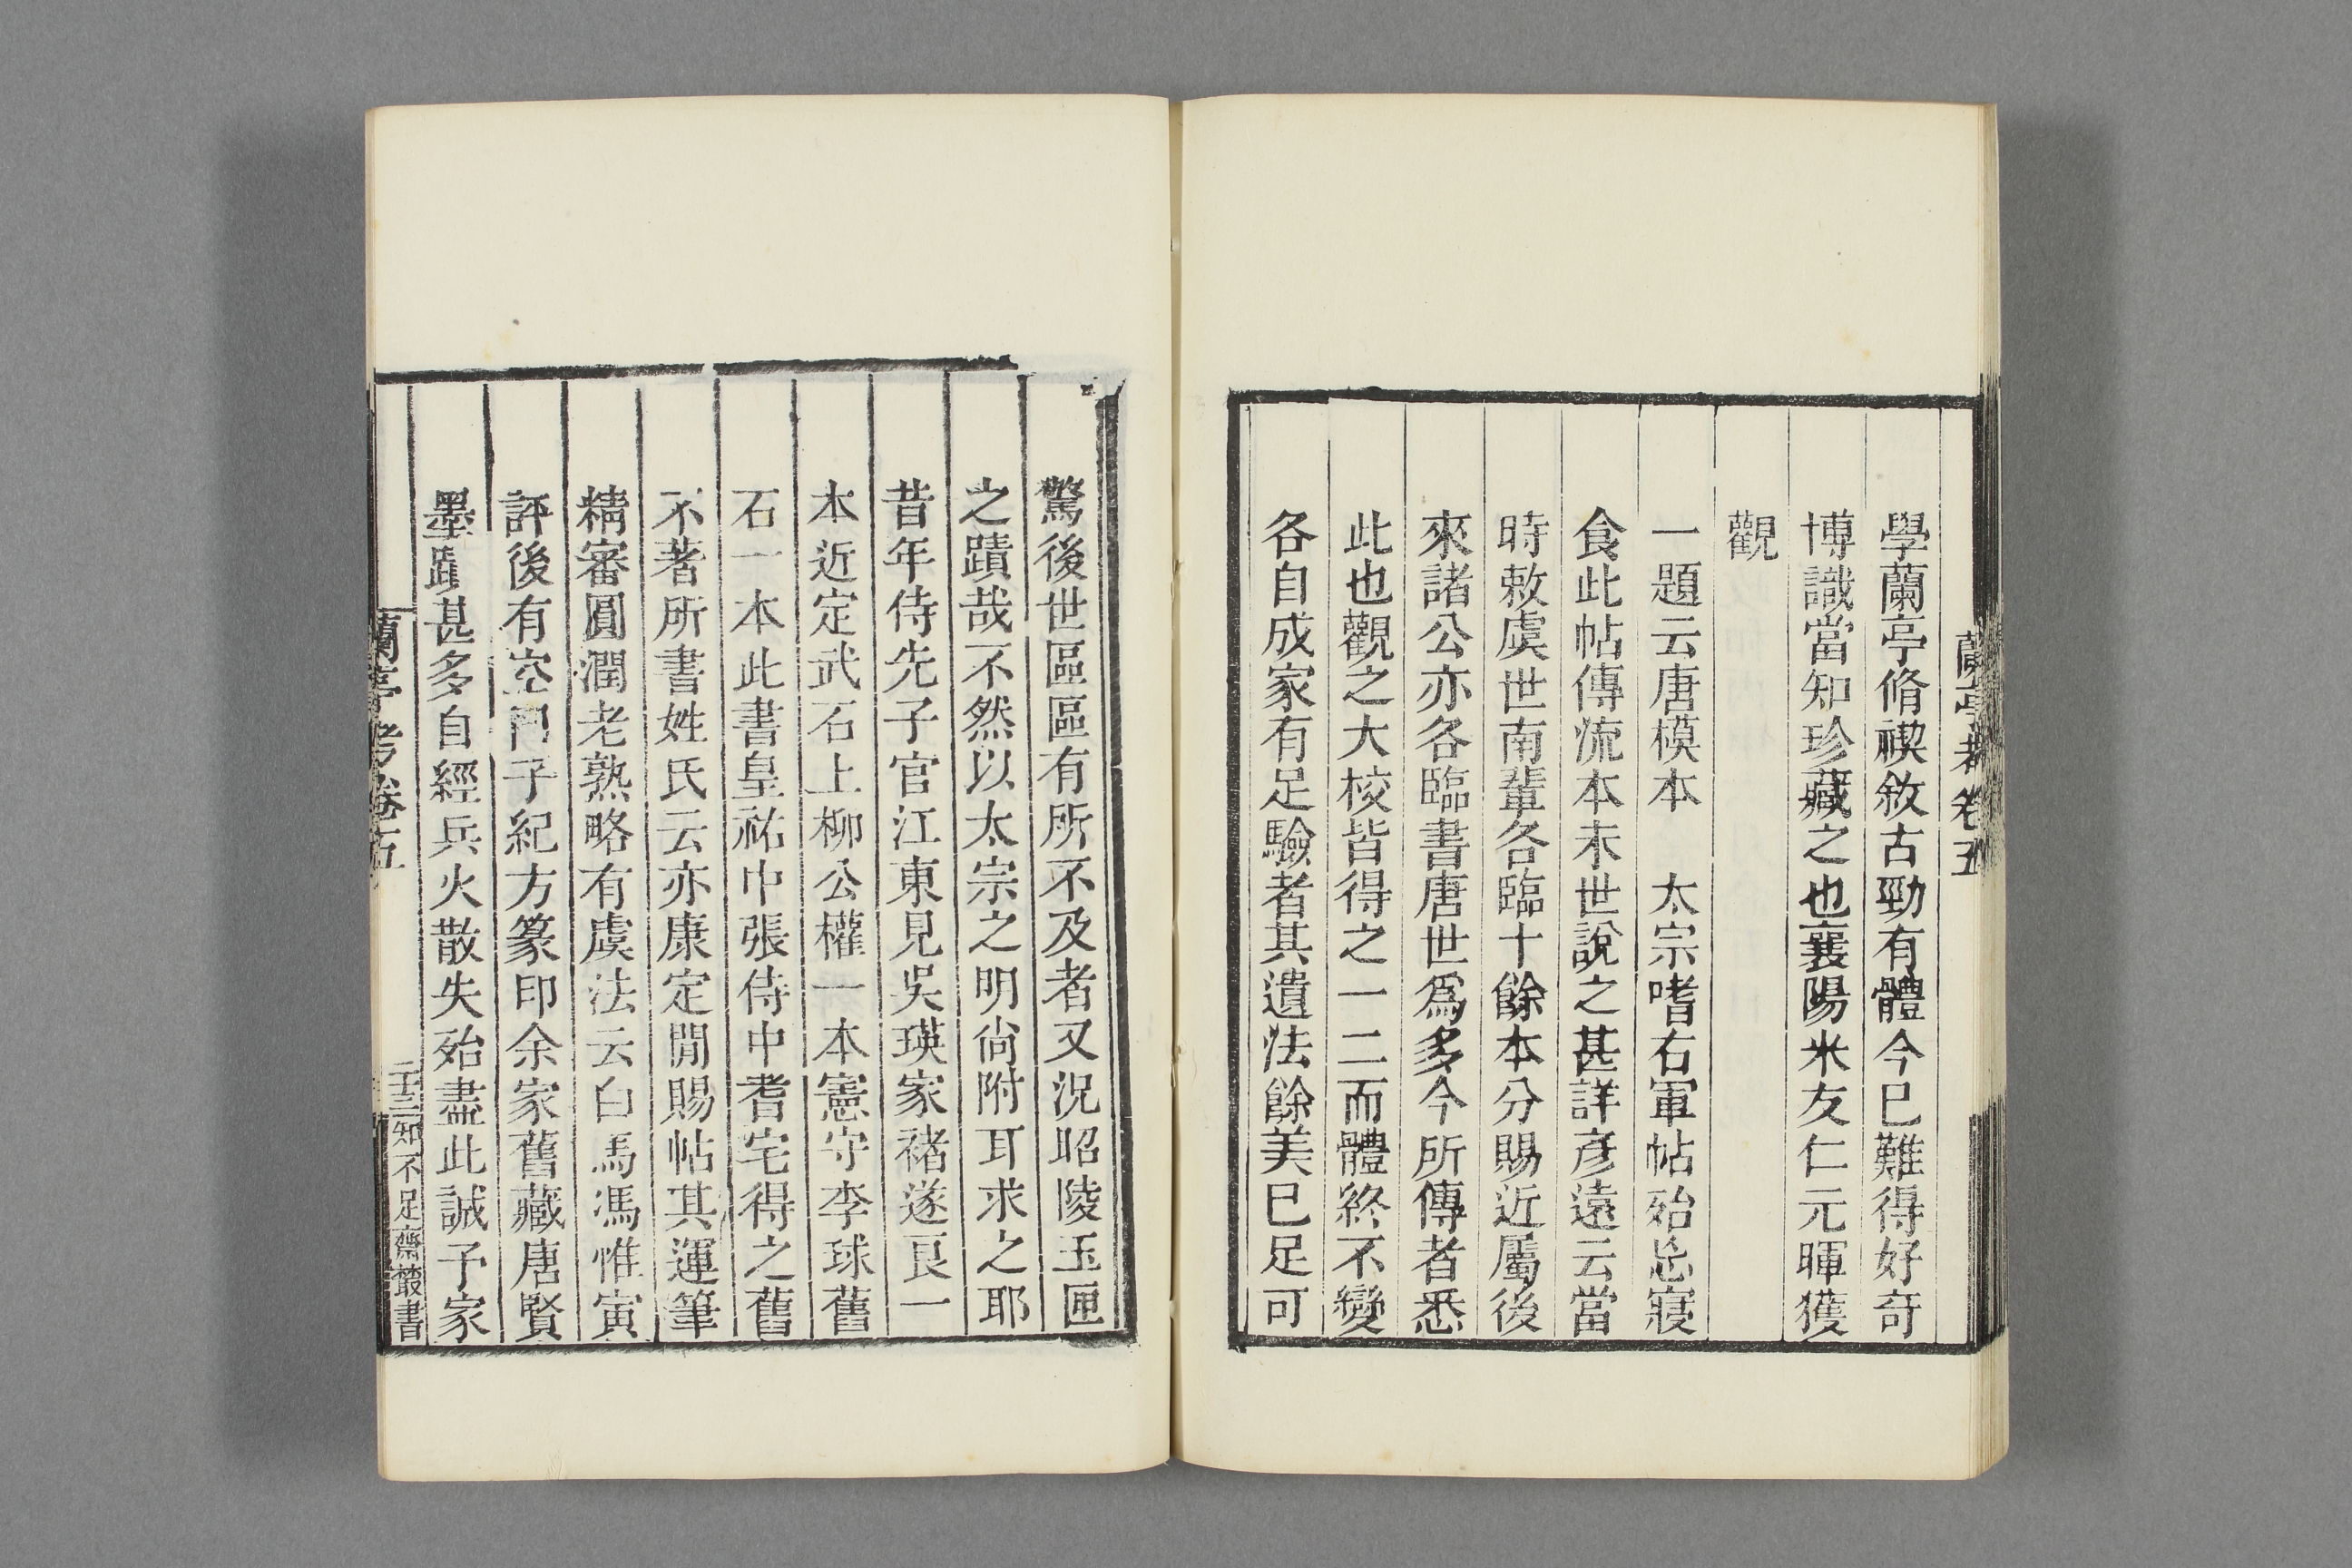 蘭亭考卷五
學蘭亭脩禊敘古勁有體今巳難得好奇
博識當知珍藏之也襄陽米友仁元暉獲
觀
一題云唐模本　太宗嗜右軍帖殆忘寢
食此帖傳流本末世說之甚詳彥遠云當
時敕虞世南輩各臨十餘本分賜近屬後
來諸公亦各臨書唐世爲多今所傳者悉
此也觀之大校皆得之一二而體終不變
各自成家有足驗者其遺法餘美巳足可
驚後世區區有所不及者又況昭陵玉匣
之蹟哉不然以太宗之明尙附耳求之耶
昔年侍先子官江東見吳瑛家褚遂良一
本近定武石上柳公權一本憲守李球舊
石一本此書皇祐中張侍中耆宅得之舊
不著所書姓氏云亦康定閒賜帖其運筆
精審圓潤老熟略有虞法云白馬馮惟寅
評後有空門子紀方篆印余家舊藏唐賢
墨蹟甚多自經兵火散失殆盡此誠予家
蘭亭考卷五
二十三
知不足齋叢書